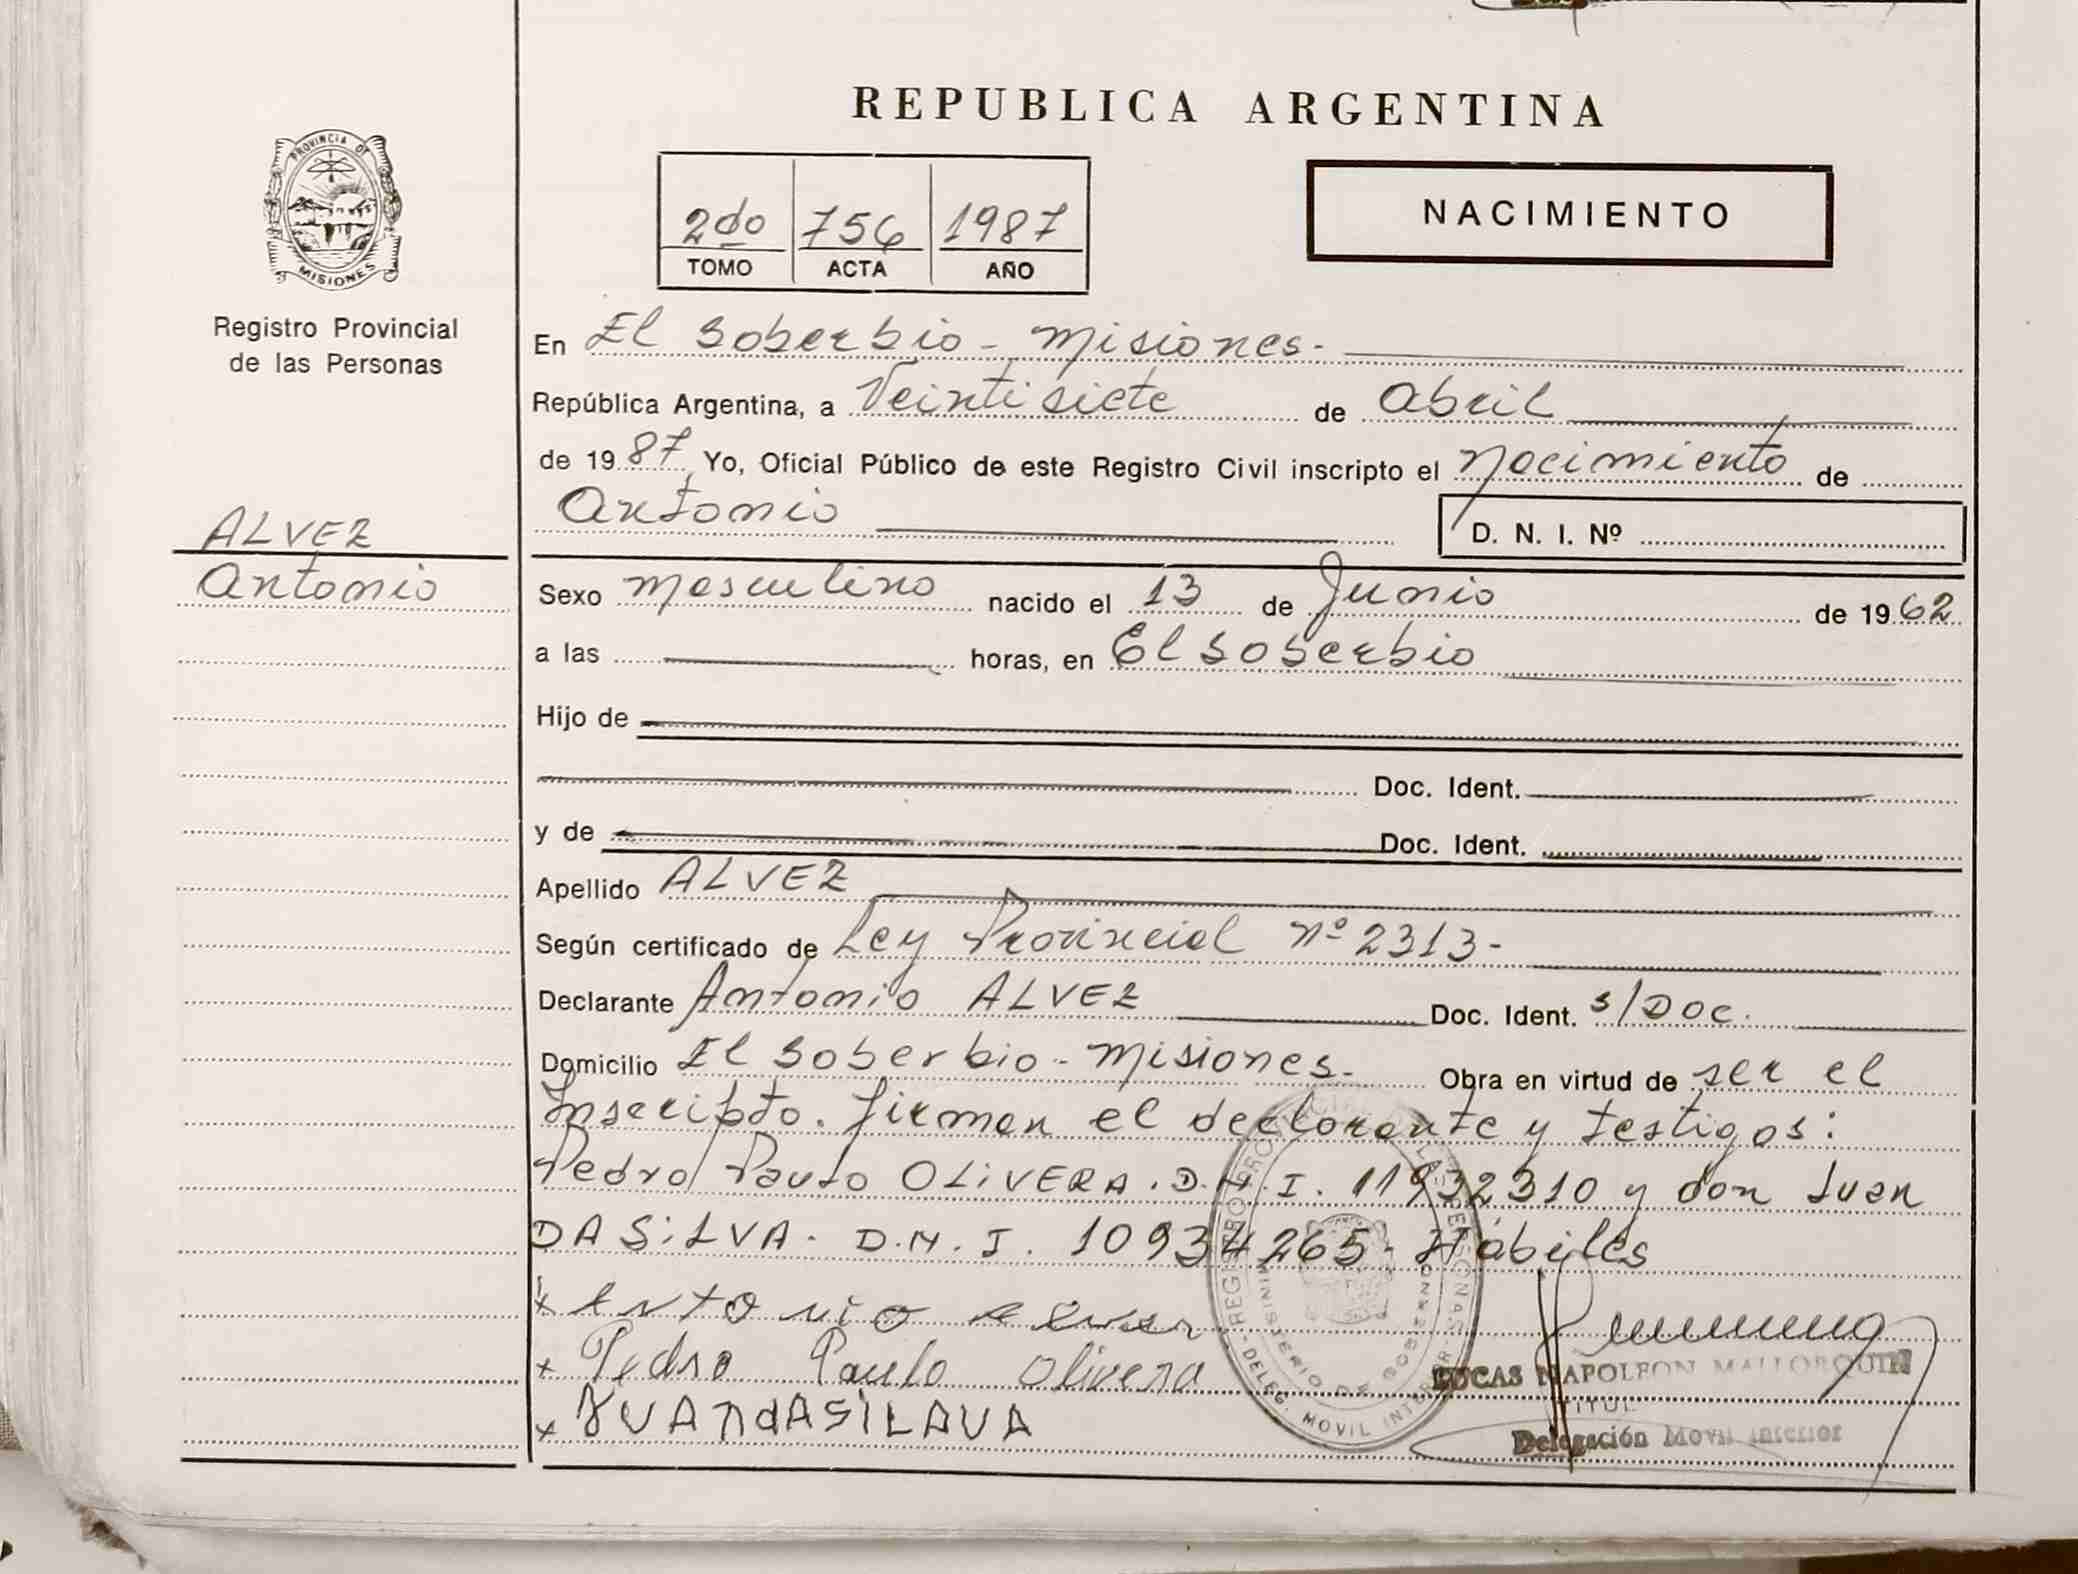 REPUBLICA ARGENTINA
PROVINCIA DE
MISIONES
Registro Provincial
de las Personas
2do 756 1987
TOMO ACTA AÑO
NACIMIENTO
En El Soberbio - Misiones-
República Argentina, a Veintisiete de Abril
de 1987 Yo, Oficial Público de este Registro Civil inscripto el Nacimiento de
Antonio D. N. I. Nº
ALVEZ
Antonio
Sexo Masculino nacido el 13 de Junio de 1962
a las horas, en El Soberbio
Hijo de
Doc. Ident.
y de Doc. Ident.
Apellido ALVEZ
Según certificado de Ley Provincial Nº 2313-
Declarante Antonio ALVEZ Doc. Ident. s/Doc.
Domicilio El Soberbio - Misiones- Obra en virtud de ser el
Inscripto. firman el declarante y testigos:
Pedro Paulo OLIVERA. D.N.I. 11932310 y don Juan
DA SILVA. D.N.I. 10934265- Hábiles
x Antonio
x Pedro Paulo Olivera
x JUANdASILAVA
LUCAS NAPOLEON MALLORQUIN
TITUL
Delegación Movil Interior
MINISTERIO DE GOBIERNO
DELEG. MOVIL INTERIOR